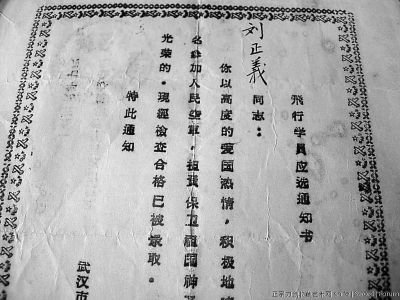 飛行学員应选通知书
刘正義
同志：
你以高度的爱国热情，积极地
名参加人民空軍，担負保卫祖国神
光荣的。現經檢查合格已被录取。
特此通知
武汉市